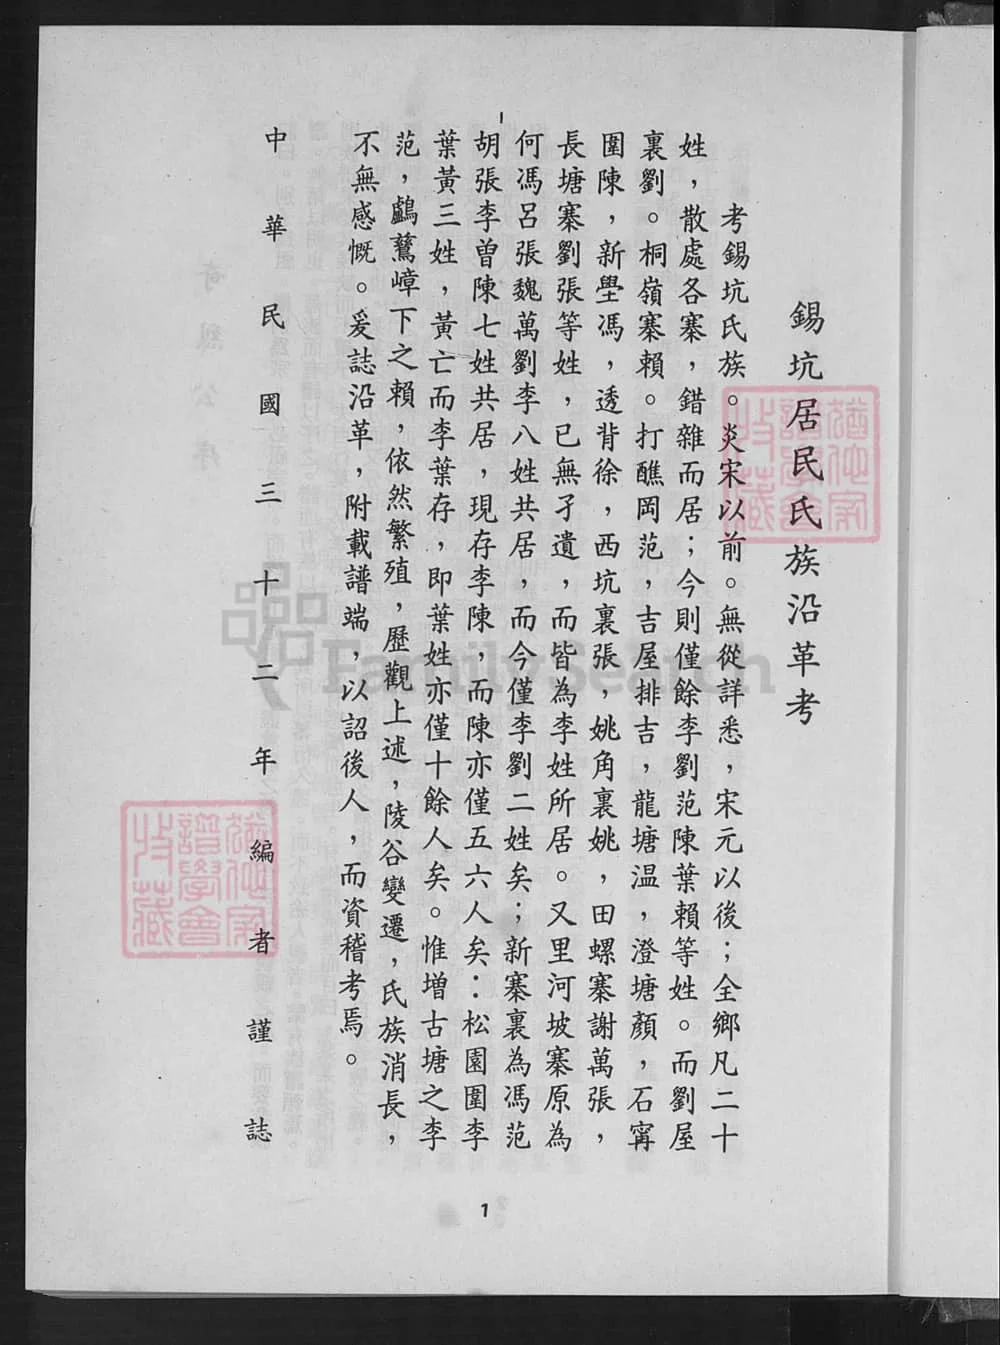 錫坑居民氏族沿革考
考錫坑氏族。炎宋以前。無從詳悉，宋元以後；全鄉凡二十
姓，散處各寨，錯雜而居；今則僅餘李劉范陳葉賴等姓。而劉屋
裏劉。桐嶺寨賴。打醮岡范，吉屋排吉，龍塘温，澄塘顏，石寗
圍陳，新壆馮，透背徐，西坑裏張，姚角裏姚，田螺寨謝萬張，
長塘寨劉張等姓，已無孑遺，而皆為李姓所居。又里河坡寨原為
何馮呂張魏萬劉李八姓共居，而今僅李劉二姓矣；新寨裏為馮范
胡張李曾陳七姓共居，現存李陳，而陳亦僅五六人矣：松園圍李
葉黃三姓，黃亡而李葉存，即葉姓亦僅十餘人矣。惟增古塘之李
范，鸕鶿嶂下之賴，依然繁殖，歷觀上述，陵谷變遷，氏族消長，
不無感慨。爰誌沿革，附載譜端，以詔後人，而資稽考焉。
中華民國三十二年編者謹誌
1
FamilySearch